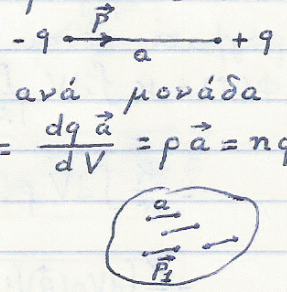 -q P⃗ +q
a
ανά μονάδα
= dq a⃗ / dV = ρ a⃗ = nq
a
P⃗₁